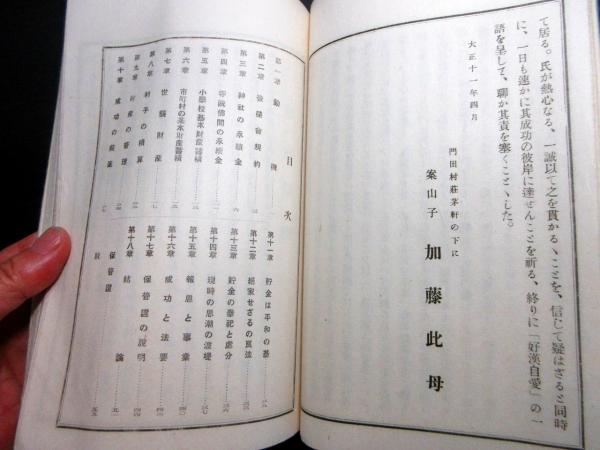 て居る。氏が熱心なる、一誠以て之を貫かるゝことを、信じて疑はざると同時
に、一日も速かに其成功の彼岸に達せんことを祈る、終りに「好漢自愛」の一
語を呈して、聊か其責を塞くことゝした。
大正十一年四月
門田村莊茅軒の下に
案山子 加藤此母
目次
第一章
第二章 規約
第三章 神社の永續金
第四章 寺院佛閣の永續金
第五章 小學校基本財産蓄積
第六章 市町村の基本財産蓄積
第七章 世襲財産
第八章 利子の積算
第九章 財産の管理
第十章 成功の
第十一章 貯金は平和の基
第十二章 絕家せざるの良法
第十三章 貯金の奉祀と處分
第十四章 現時の思潮の波堤
第十五章 報恩と事業
第十六章 成功と法要
第十七章 保管證の說明
第十八章 結論
保管證